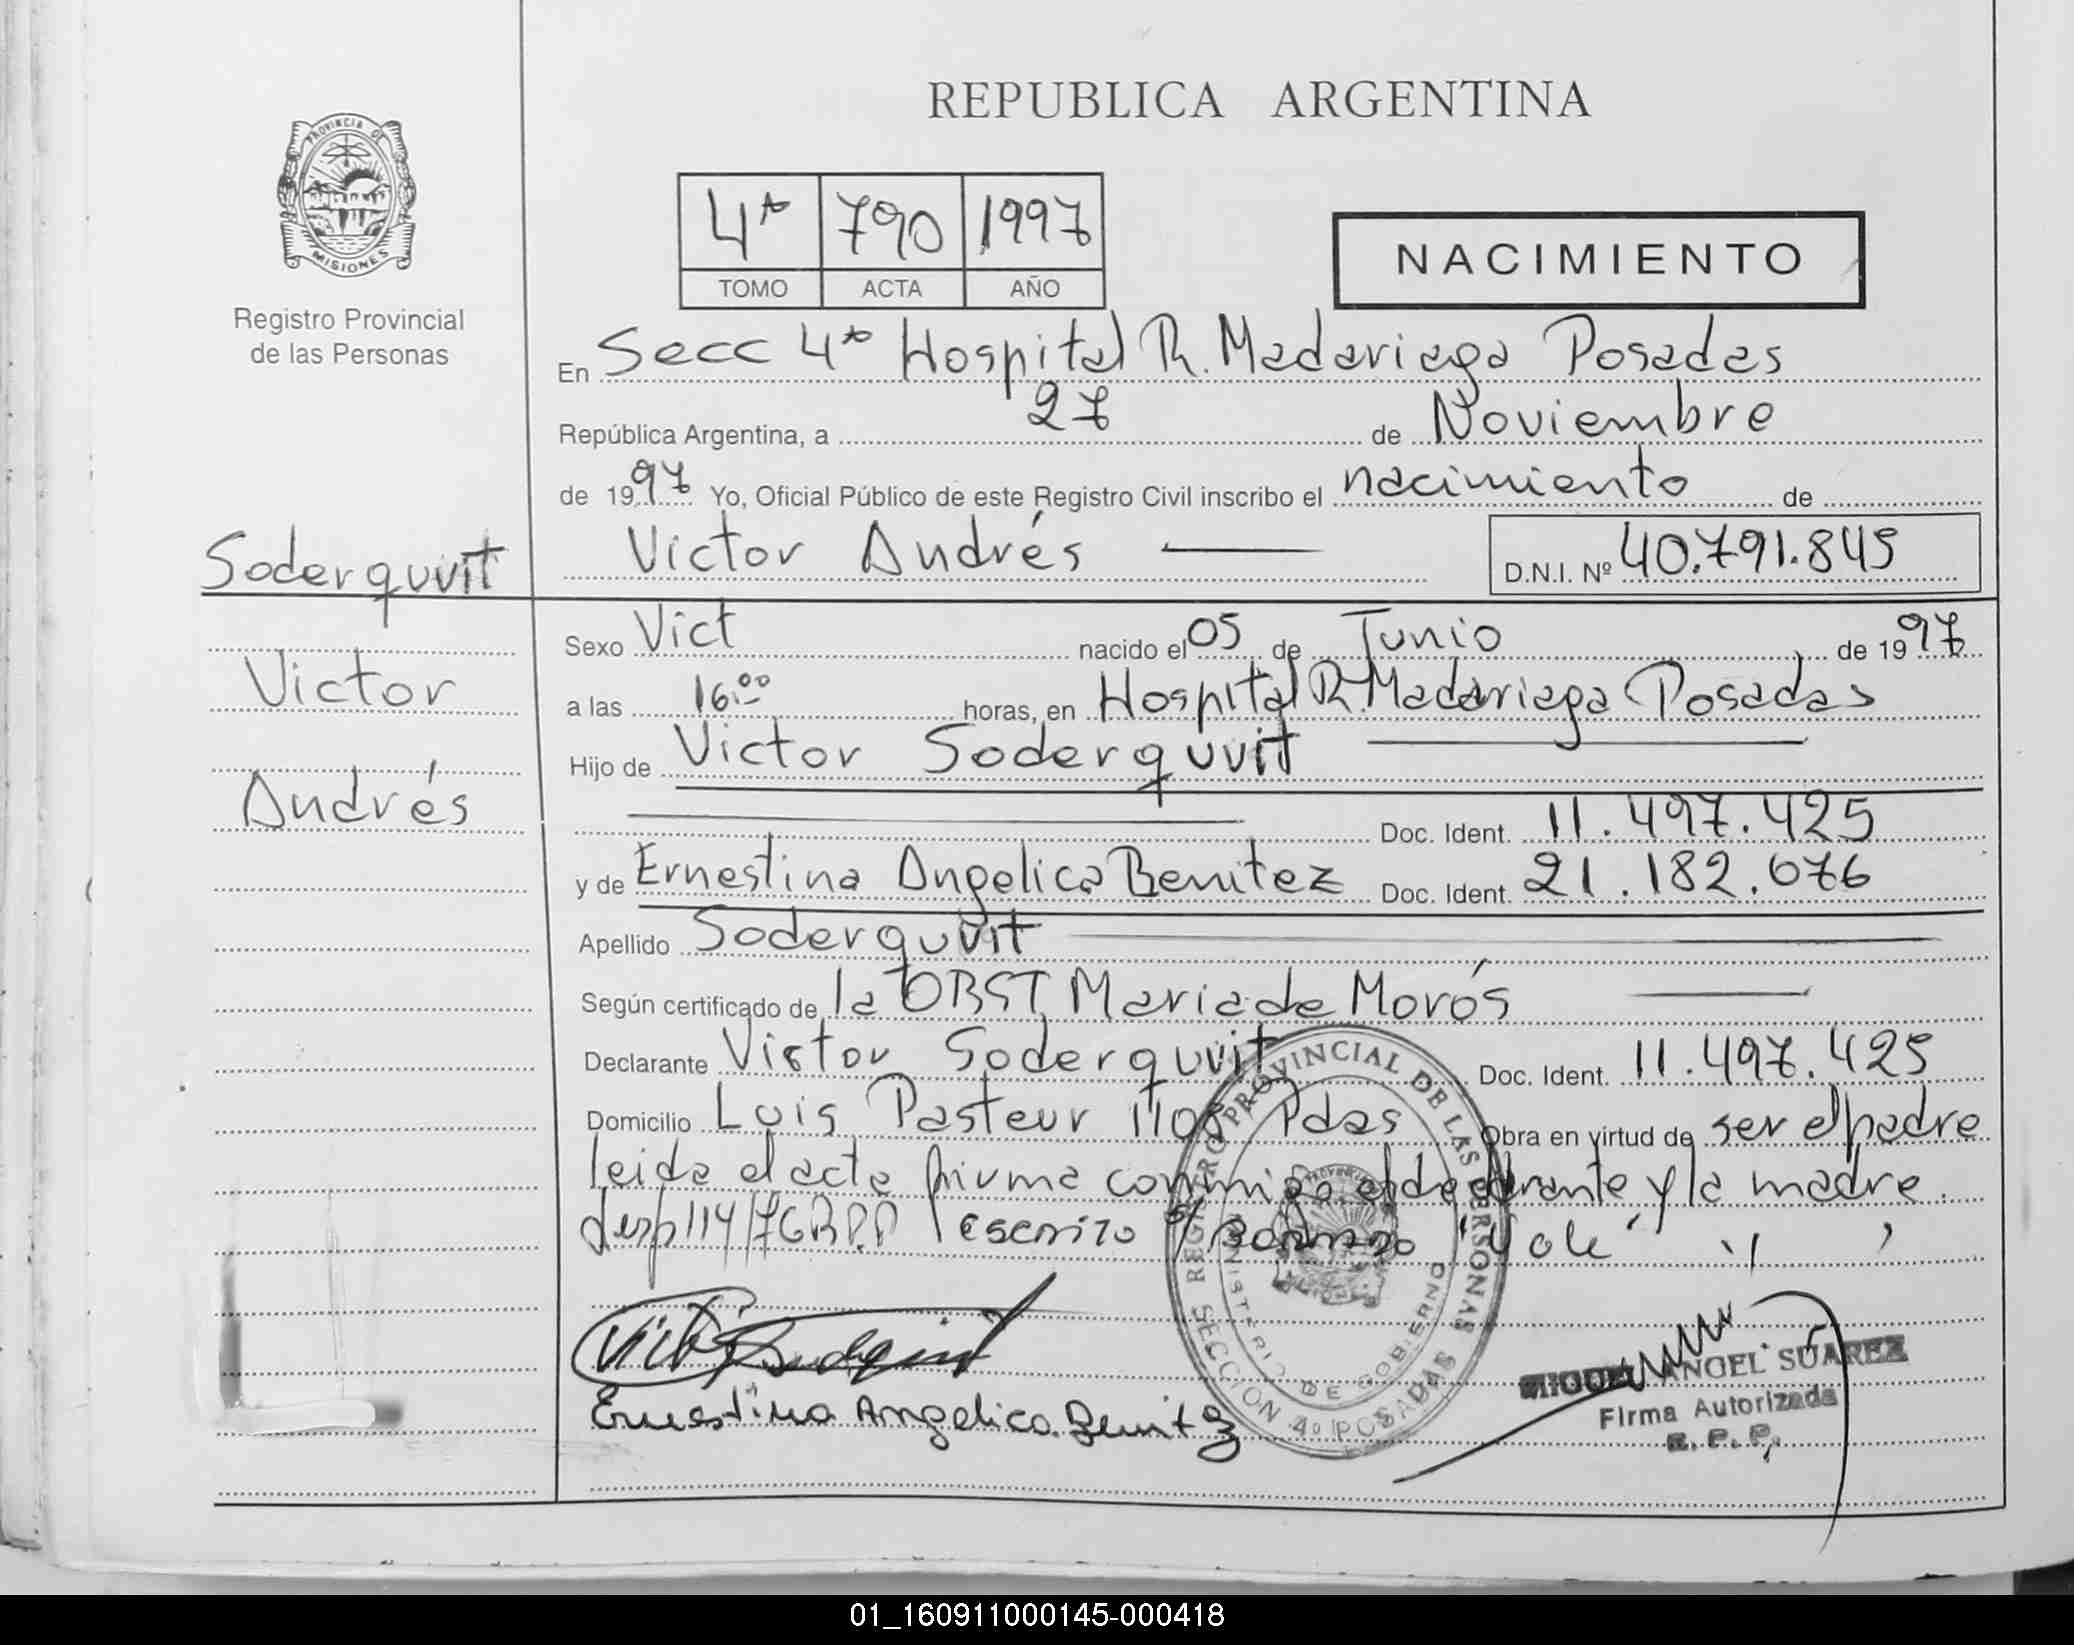 REPUBLICA ARGENTINA
PROVINCIA DE
MISIONES
Registro Provincial
de las Personas
4ª 790 1997
TOMO ACTA AÑO
NACIMIENTO
En Secc 4ª Hospital R. Madariaga Posadas
República Argentina, a 27 de Noviembre
de 1997 Yo, Oficial Público de este Registro Civil inscribo el nacimiento de
Victor Andrés D.N.I. Nº 40.791.845
Soderquvit
Victor
Andrés
Sexo Vict nacido el 05 de Junio de 1997
a las 16.00 horas, en Hospital R. Madariaga Posadas
Hijo de Victor Soderquvit
Doc. Ident. 11.497.425
y de Ernestina Angelica Benitez Doc. Ident. 21.182.676
Apellido Soderquvit
Según certificado de la OBST. Maria de Morós
Declarante Victor Soderquvit Doc. Ident. 11.497.425
Domicilio Luis Pasteur 1108 Pdas Obra en virtud de ser el padre
leida el acta firma conmigo el declarante y la madre.
escrizo s/
REGISTRO PROVINCIAL DE LAS PERSONAS
MINISTERIO DE GOBIERNO
SECCION 4º POSADAS
Ernestina Angelica Benitez
MIGUEL ANGEL SUAREZ
Firma Autorizada
R. P. P.
01_160911000145-000418